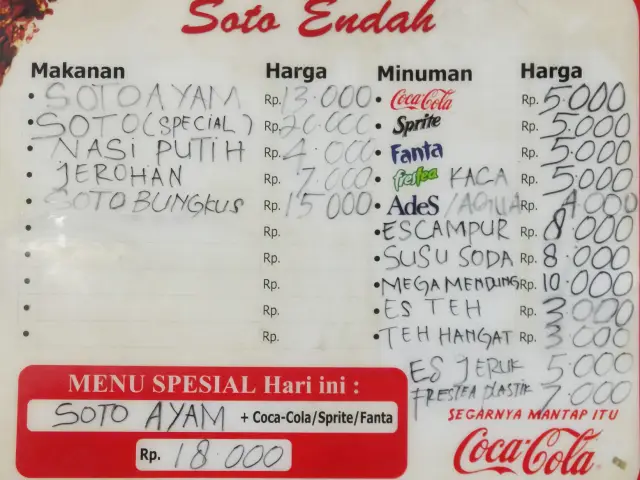 Soto Endah
Makanan Harga
• SOTO AYAM Rp. 13.000
• SOTO (SPECIAL) Rp. 20.000
• NASI PUTIH Rp. 4.000
• JEROHAN Rp. 7.000
• SOTO BUNGKUS Rp. 15 000
• Rp.
• Rp.
• Rp.
• Rp.
• Rp.
Minuman Harga
• Coca-Cola Rp. 5.000
• Sprite Rp. 5.000
• Fanta Rp. 5.000
• frestea KACA Rp. 5.000
• AdeS / AQUA Rp. 4.000
• ES CAMPUR Rp. 8.000
• SUSU SODA Rp. 8.000
• MEGA MENDUNG Rp. 10.000
• ES TEH Rp. 3.000
• TEH HANGAT Rp. 3.000
ES JERUK 5.000
FRESTEA PLASTIK 7.000
MENU SPESIAL Hari ini :
SOTO AYAM + Coca-Cola/Sprite/Fanta
Rp. 18.000
SEGARNYA MANTAP ITU
Coca-Cola